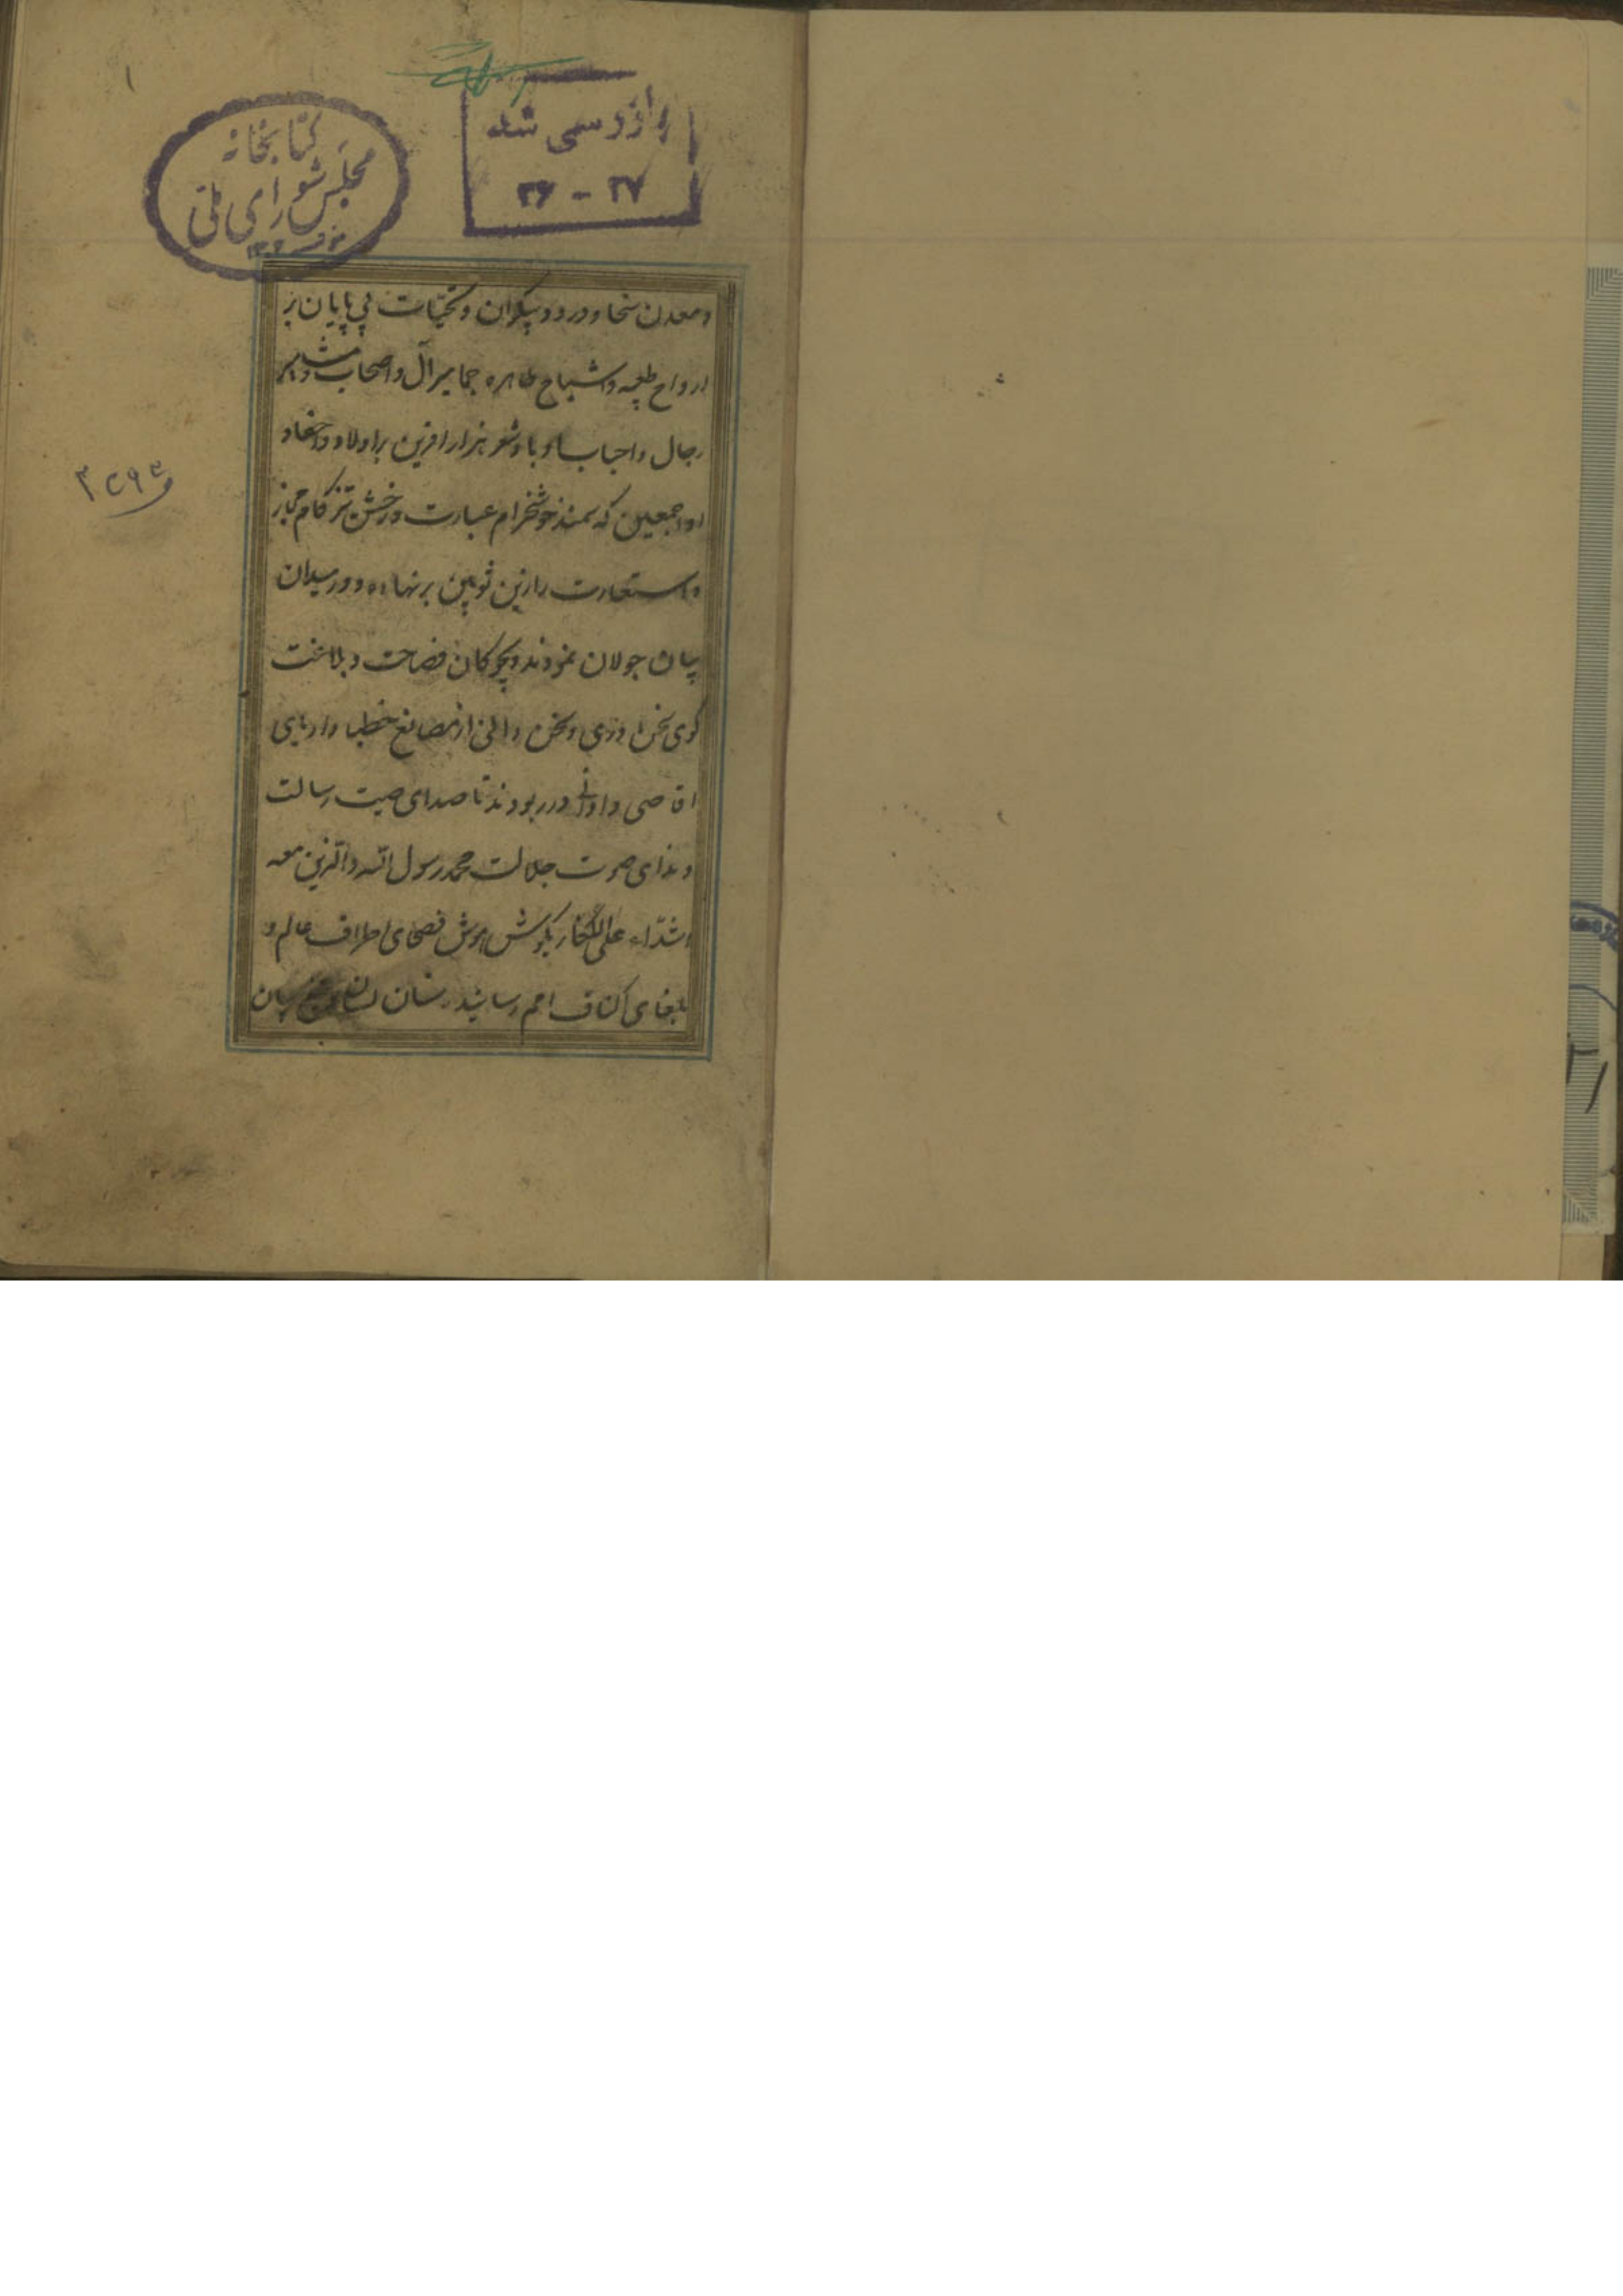 ۱
کتابخانه
مجلس شورای ملی
بازرسی شد
۳۶ - ۳۷
ومعدن سخا ودرود بیکران وتحیّات بی پایان بر
ارواح طیبه واشباح طاهره جماهیر آل واصحاب ومشاهیر
رجال واحباب او باد وشعر هزار افرین بر اولاد واحفاد
او اجمعین که سمند خوشخرام عبارت ورخش تیزکام مجاز
واستعارت را زین تزیین برنهاده ودر میدان
بیان جولان نمودند وبچوکان فصاحت وبلاغت
کوی سخن اوری وسخن دانی از مصاقع خطبا واربابی
اقاصی وادانی در ربودند تا صدای صیت رسالت
وندای صوت جلالت محمد رسول الله والذین معه
اشدّاء علی الکفار بکوش هوش فصحای اطراف عالم و
بلغای اکناف امم رسانید سنان لسان تیغ بیان